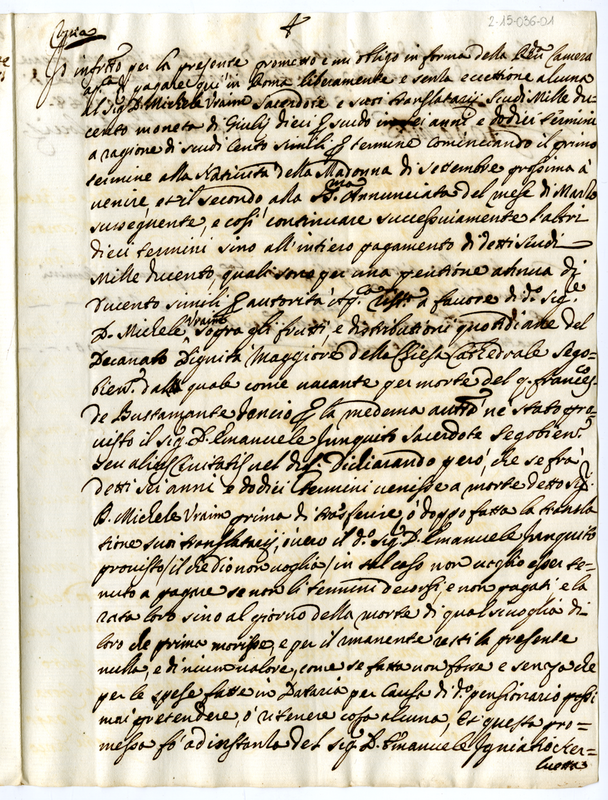 2-15-036-01
Copia
Io infrtto per la presente prometto e mi obligo in forma della Camera
pagare quì in Roma liberamente e senza eccettione alcuna
al Sigr D. Michele Vraim Sacerdote e suoi translatarij scudi Mille du=
cento moneta di Giulij dieci scudo in sei anni e dodici termini
a ragione di scudi Cento simili termine cominciando il primo
termine alla Natività della Madonna di Settembre prossima à
venire, et il secondo alla Annunciata del mese di Marzo
susseguente, e così continuare successivamente l'altri
dieci termini sino all'intiero pagamento di detti scudi
Mille ducento, quali sono per una pentione annua di
Ducento simili autorità à favore di do Sigr
D. Michele Vraim sopra gli frutti, e distributioni quotidiane del
Decanato Dignità Maggiore della Chiesa Catedrale Sego=
bien. dalla quale come vacante per morte del q. Francesco
de Bustamante Joncio la medema autorità nè stato pro
visto il sig. D. Emanuele Junquito sacerdote Segobien.
seu alias Civitatis vel Dichiarando però, che se frà
detti sei anni e dodici termini venisse a morte detto Sigr
D. Michele Vraim prima di trasferire, ò doppo fatta la transla
tione suoi translatarij, overo il do Sigr D. Emanuele Junquito
provisto (il che dio non voglia) in tal caso non voglio esser te=
nuto a pagare se non li termini decorsi, e non pagati e la
rata loro sino al giorno della morte di qual si voglia di
loro che prima morisse, e per il rimanente resti la presente
nulla, e di niun valore, come se fatta non fosse e senza che
per le spese fatte in Dataria per causa di do pensionario possi
mai pretendere, ò ritenere cosa alcuna, Et questa pro=
messa fò ad instanza del sigr D. Emanuele Ignatio Cer=